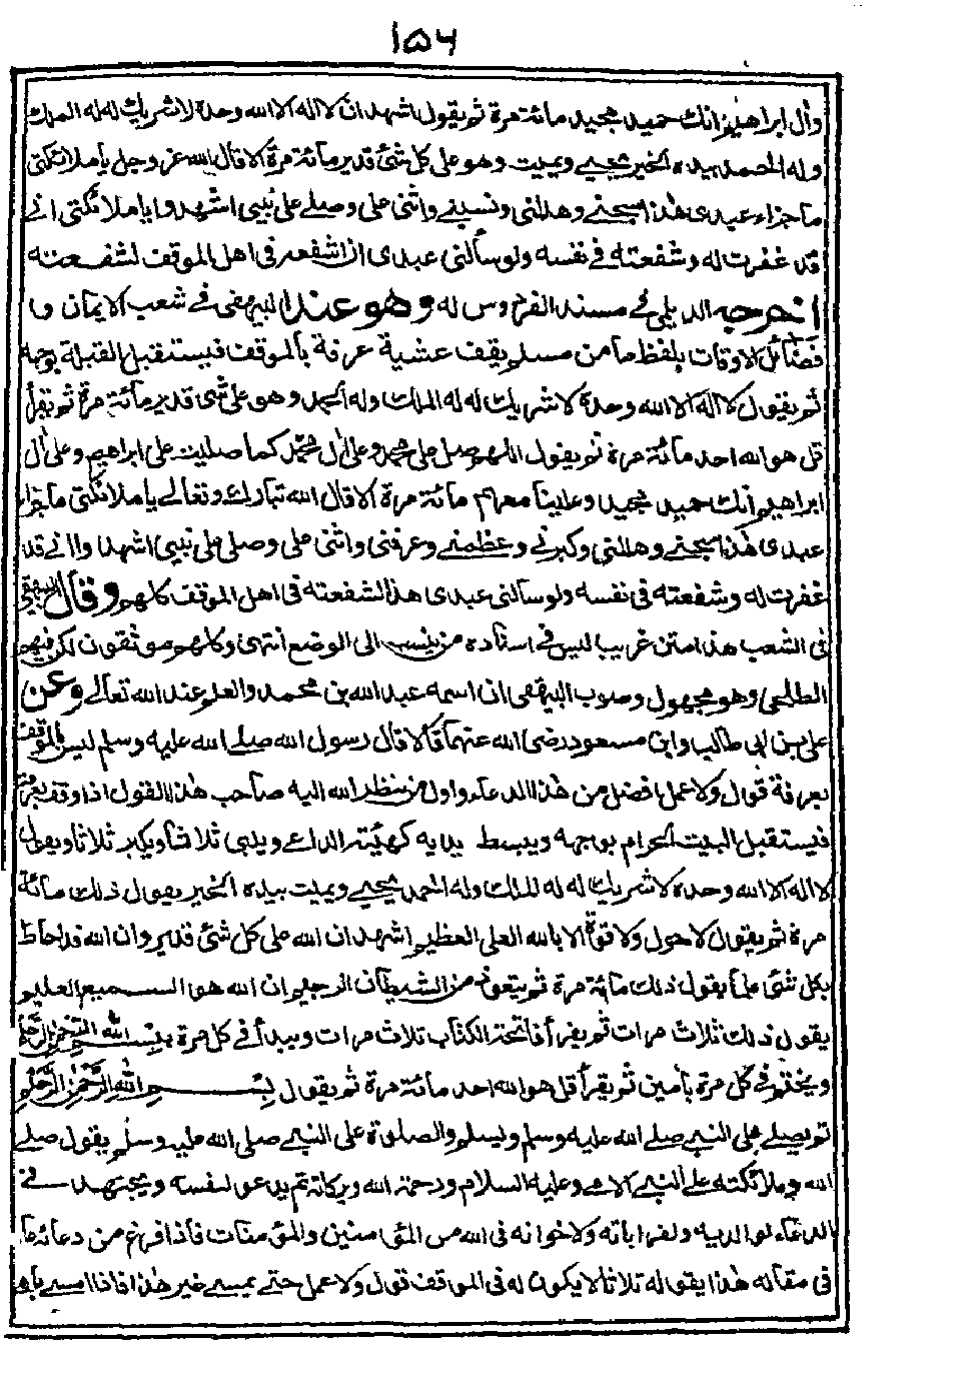 ۱۵۶
وال ابراهيم انك حميد مجيد مائة مرة ثم يقول اشهد ان لا اله الا الله وحده لا شريك له له الملك
وله الحمد بيده الخير يحيي ويميت وهو على كل شئ قدير مائة مرة الا قال الله عز وجل يا ملائكتي
ما جزاء عبدي هذا سبحني وهللني ونسبني واثنى علي وصلى على نبيي اشهدوا يا ملائكتي اني
قد غفرت له وشفعته في نفسه ولو سألني عبدي ان اشفعه في اهل الموقف لشفعته
اخرجه الديلمي في مسند الفردوس له وهو عند البيهقي في شعب الايمان و
فضائل الاوقات بلفظ ما من مسلم يقف عشية عرفة بالموقف فيستقبل القبلة بوجهه
ثم يقول لا اله الا الله وحده لا شريك له له الملك وله الحمد وهو على كل شئ قدير مائة مرة ثم يقرأ
قل هو الله احد مائة مرة ثم يقول اللهم صل على محمد وعلى ال محمد كما صليت على ابراهيم وعلى ال
ابراهيم انك حميد مجيد وعلينا معهم مائة مرة الا قال الله تبارك وتعالى يا ملائكتي ما جزاء
عبدي هذا سبحني وهللني وكبرني وعظمني وعرفني واثنى علي وصلى على نبيي اشهدوا اني قد
غفرت له وشفعته في نفسه ولو سألني عبدي هذا لشفعته في اهل الموقف كلهم وقال البيهقي
في الشعب هذا متن غريب ليس في اسناده من ينسب الى الوضع انتهى وكلهم موثقون لكن فيهم
الطلحي وهو مجهول وصوب البيهقي ان اسمه عبد الله بن محمد والعلم عند الله تعالى وعن
على بن ابي طالب وابن مسعود رضى الله عنهما قالا قال رسول الله صلى الله عليه وسلم ليس بالموقف
بعرفة قول ولا عمل افضل من هذا الدعاء واول من ينظر الله اليه صاحب هذا القول اذا وقف بعرفة
فيستقبل البيت الحرام بوجهه ويبسط يديه كهيئة الداعي ويلبي ثلاثا ويكبر ثلاثا ويقول
لا اله الا الله وحده لا شريك له له الملك وله الحمد يحيي ويميت بيده الخير يقول ذلك مائة
مرة ثم يقول لا حول ولا قوة الا بالله العلي العظيم اشهد ان الله على كل شئ قدير وان الله قد احاط
بكل شئ علما يقول ذلك مائة مرة ثم يتعوذ من الشيطان الرجيم ان الله هو السميع العليم
يقول ذلك ثلاث مرات ثم يقرأ فاتحة الكتاب ثلاث مرات ويبدأ في كل مرة ببسم الله الرحمن الرحيم
ويختم في كل مرة بامين ثم يقرأ قل هو الله احد مائة مرة ثم يقول بسم الله الرحمن الرحيم
ثم يصلي على النبي صلى الله عليه وسلم ويسلم والصلوة على النبي صلى الله عليه وسلم يقول صلى
الله وملائكته على النبي الامي وعليه السلام ورحمة الله وبركاته ثم يدعو لنفسه ويجتهد في
الدعاء لوالديه ولقراباته ولاخوانه في الله من المؤمنين والمؤمنات فاذا فرغ من دعائه عاد
في مقاله هذا يقوله ثلاثا لا يكون له في الموقف قول ولا عمل حتى يمسي غير هذا فاذا امسى باهى